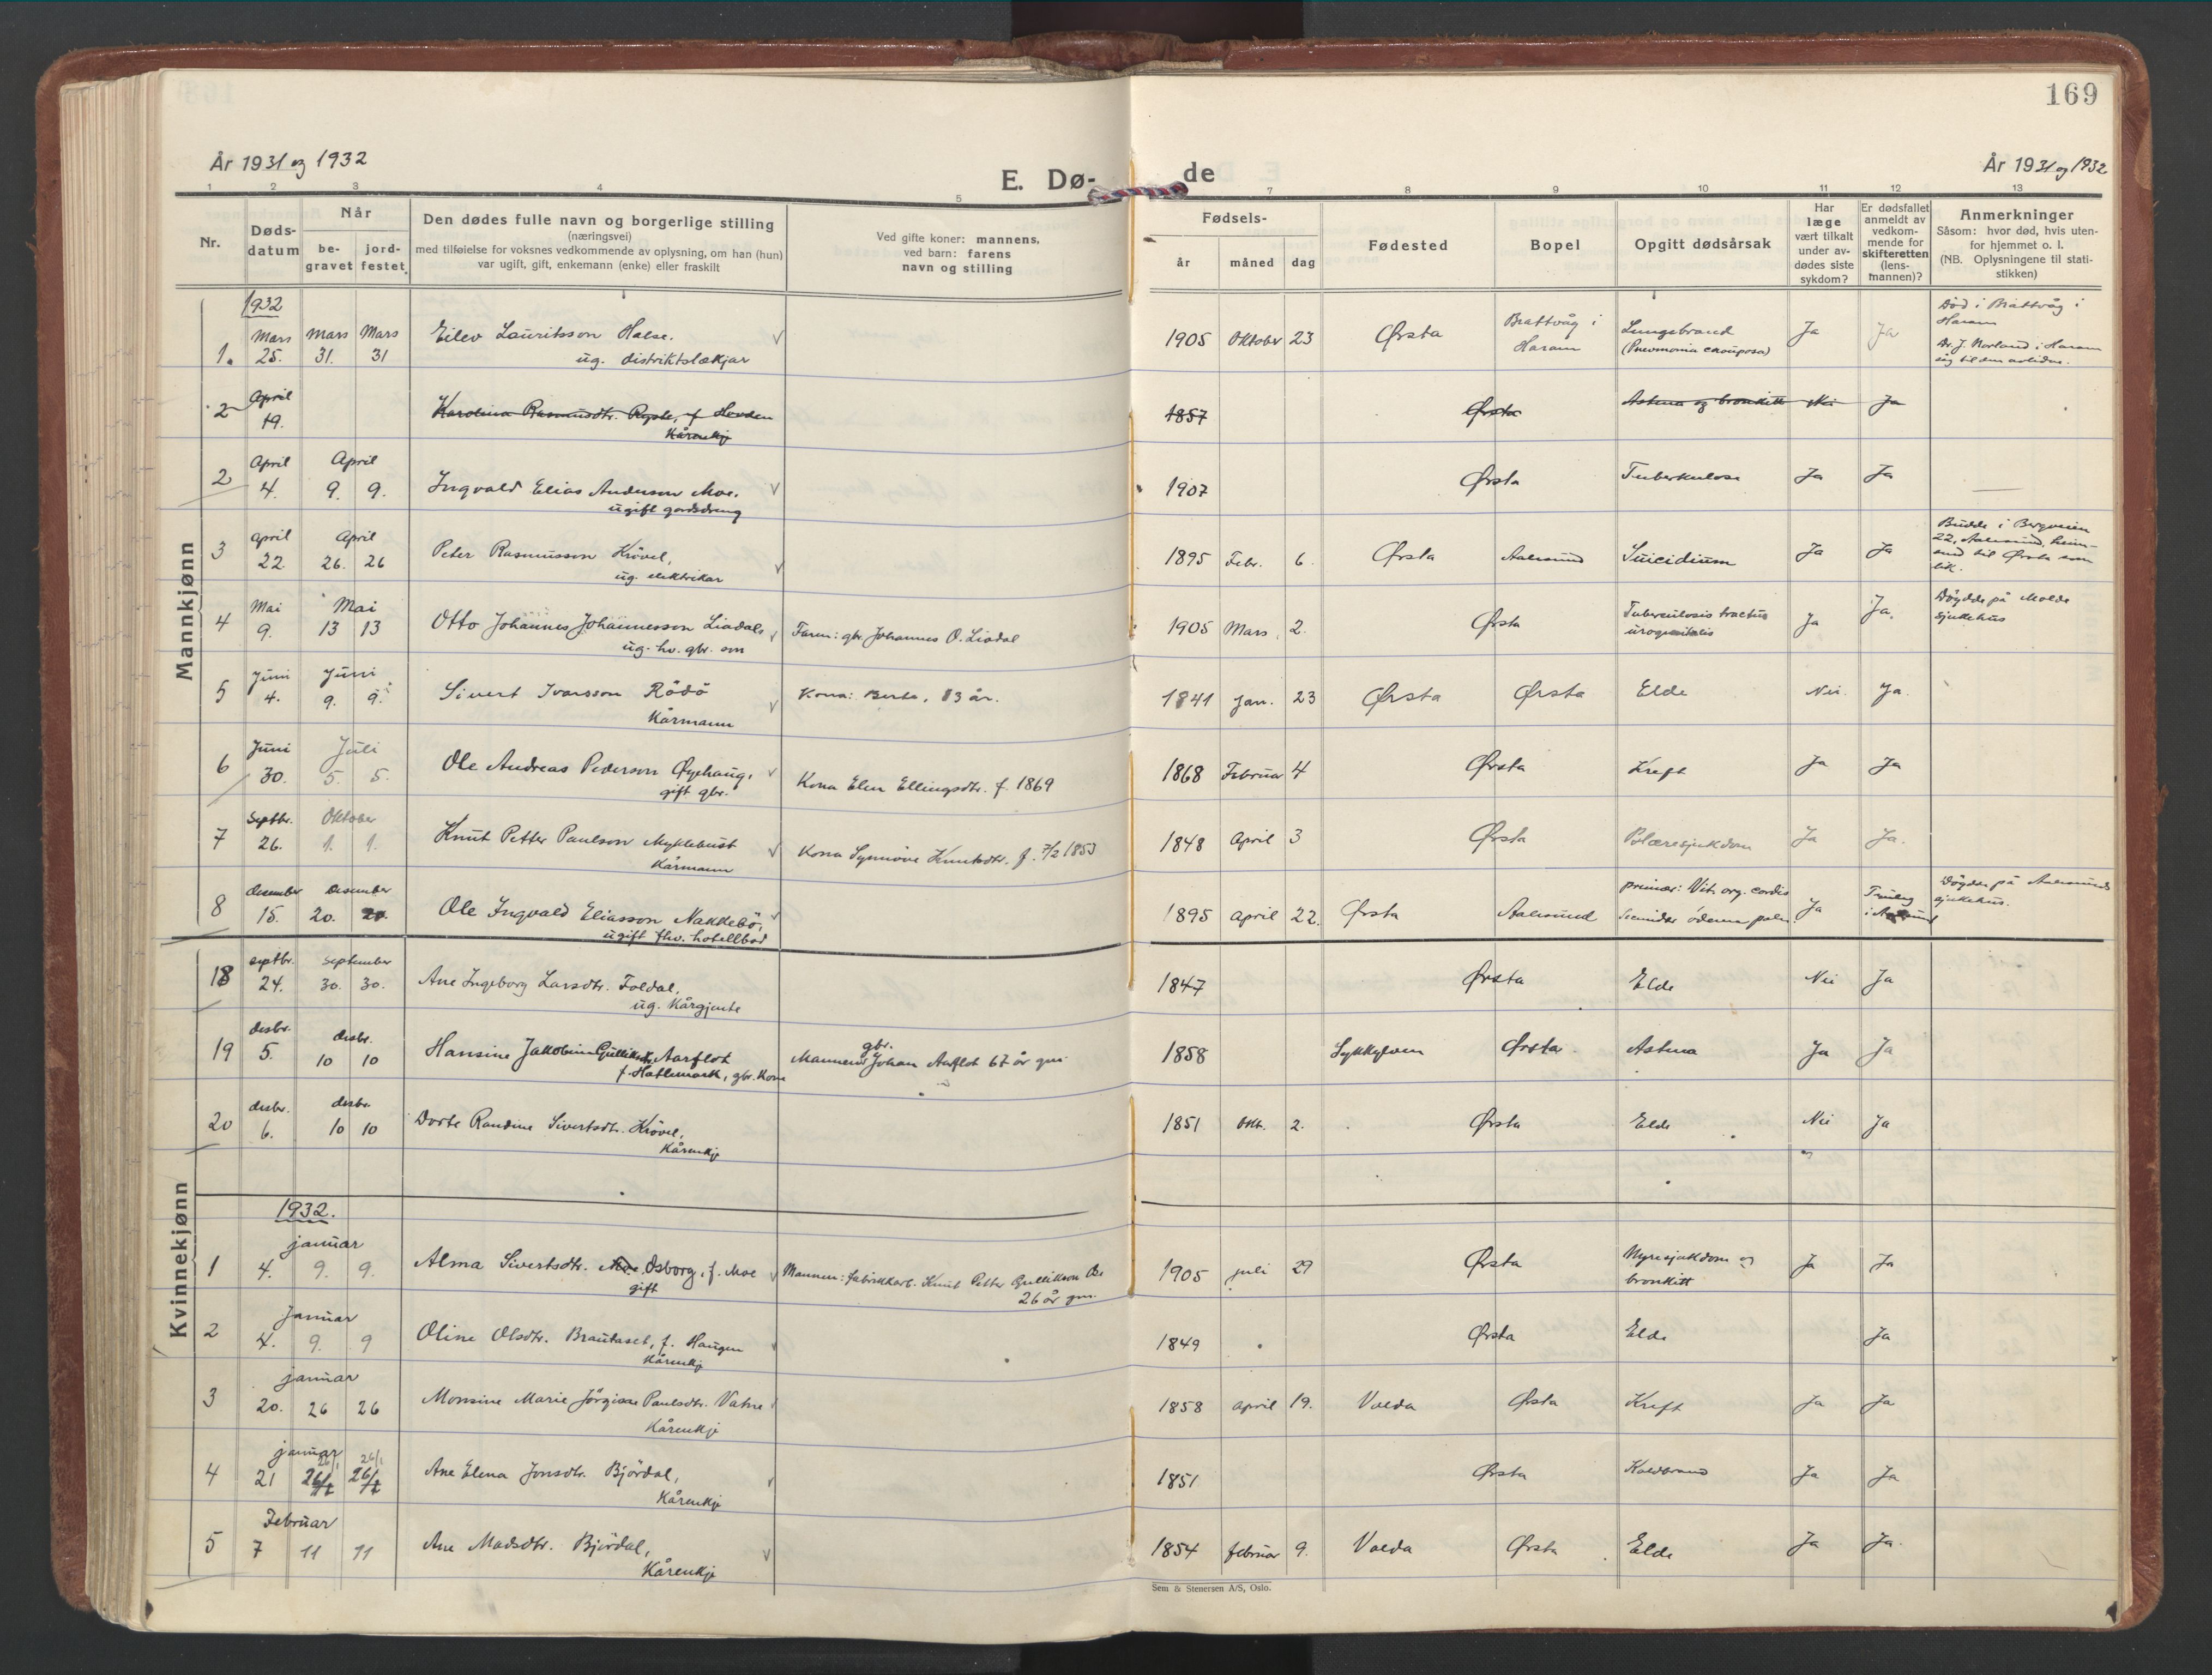 169
År 1931 og 1932
E. Dø- de
År 1931 og 1932
1 2 3 4 5 7 8 9 10 11 12 13
Nr.
Døds-
datum
Når
be-
gravet
jord-
festet
Den dødes fulle navn og borgerlige stilling
(næringsvei)
med tilføielse for voksnes vedkommende av oplysning, om han (hun)
var ugift, gift, enkemann (enke) eller fraskilt
Ved gifte koner: mannens,
ved barn: farens
navn og stilling
Fødsels-
år måned dag
Fødested
Bopel
Opgitt dødsårsak
Har
læge
vært tilkalt
under av-
dødes siste
sykdom?
Er dødsfallet
anmeldt av
vedkom-
mende for
skifteretten
(lens-
mannen)?
Anmerkninger
Såsom: hvor død, hvis uten-
for hjemmet o. l.
(NB. Oplysningene til stati-
stikken)
Mannkjønn
1932
1. Mars 25. Mars 31. Mars 31 Eilev Lauritsson Halse.
ug. distriktslækjar
1905 Oktober 23 Ørsta Brattvåg i
Haram
Lungebrand
(Pneumonia crouposa)
Ja Ja
Død i Brattvåg i
Haram
Dr. J. Norland i Haram
2 April 19. Karolina Rasmusdtr. Ryste, f. Hovden
Kårenkje
1857 Ørsta Astma og bronkitt Nei Ja
2 April 4. April 9. 9. Ingvald Elias Anderson Moe.
ugift gardsdreng
1907 Ørsta Tuberkulose Ja Ja
3 April 22 April 26. 26 Peter Rasmusson Krövel,
ug. elektrikar
1895 Febr. 6. Ørsta Aalesund Suicidium Ja Ja
Budde i Bergveien
22, Aalesund, heim-
send til Ørsta som
lik.
4 Mai 9. Mai 13 13 Otto Johannes Johannesson Liadal
ug. hv. gbr. son
Faren: gbr. Johannes O. Liadal
1905 Mars 2. Ørsta Tuberculosis tractus
urogenitalis
Ja Ja.
Döydde på Molde
sjukehus
5 Juni 4. Juni 9. 9. Sivert Ivarsson Rödö
Kårmann
Kona: Berta, 83 år.
1841 Jan. 23 Ørsta Ørsta Elde Nei. Ja.
6 Juni 30. Juli 5. 5. Ole Andreas Pederson Øyehaug,
gift gbr.
Kona Elen Ellingsdtr. f. 1869
1868 Februar 4 Ørsta Kreft Ja Ja
7 Septbr. 26. Oktober 1. 1. Knut Petter Paulson Myklebust
Kårmann
Kona Synnöve Knutsdtr. f. 7/2 1853
1848 April 3 Ørsta Blæresjukdom Ja Ja.
8 Desember 15. Desember 20. 20. Ole Ingvald Eliasson Nakkebö,
ugift fhv. hotellbod
1895 April 22. Ørsta Aalesund primær: Vit. org. cordis
Secundær ödema pulm.
Ja
i Aalesund
Döydde på Aalesunds
sjukehus.
Kvinnekjønn
18 septbr. 24. September 30. 30. Ane Ingeborg Larsdtr. Foldal,
ug. Kårgjente
1847 Ørsta Elde Nei Ja
19 desbr. 5. desbr. 10 10 Hansine Jakobine Gulliksdtr. Aarflot
f. Hatlemark, gbr. Kone
gbr.
Mannen: Johan Aarflot 67 år gml.
1858 Sykkylven Ørsta Astma Ja Ja
20 desbr. 6. desbr. 10 10 Dorte Randine Sivertsdtr. Krövel,
Kårenkje
1851 Okt. 2. Ørsta Elde Nei Ja
1932.
1 januar 4. 9. 9. Alma Sivertsdtr. Moe Osborg, f. Moe
gift
Mannen: fabrikkarb. Knut Petter Gullikson Ose
26 år gml.
1905 juli 29 Ørsta Nyresjukdom og
bronkitt
Ja Ja
2 Januar 4. 9. 9 Oline Olsdtr. Brautaset, f. Haugen
Kårenkje
1849 Ørsta Elde Ja
3 januar 20. 26 26 Monsine Marie Jörgine Paulsdtr. Vatne
Kårenkje
1858 april 19. Volda Ørsta Kreft Ja Ja
4 januar 21 26/1 26/1 Ane Elena Jonsdtr. Björdal,
Kårenkje
1851 Ørsta Koldbrand Ja Ja
5 Februar 7 11 11 Ane Madsdtr. Björdal,
Kårenkje
1854 februar 9. Volda Ørsta Elde Ja Ja.
Sem & Stenersen A/S, Oslo.